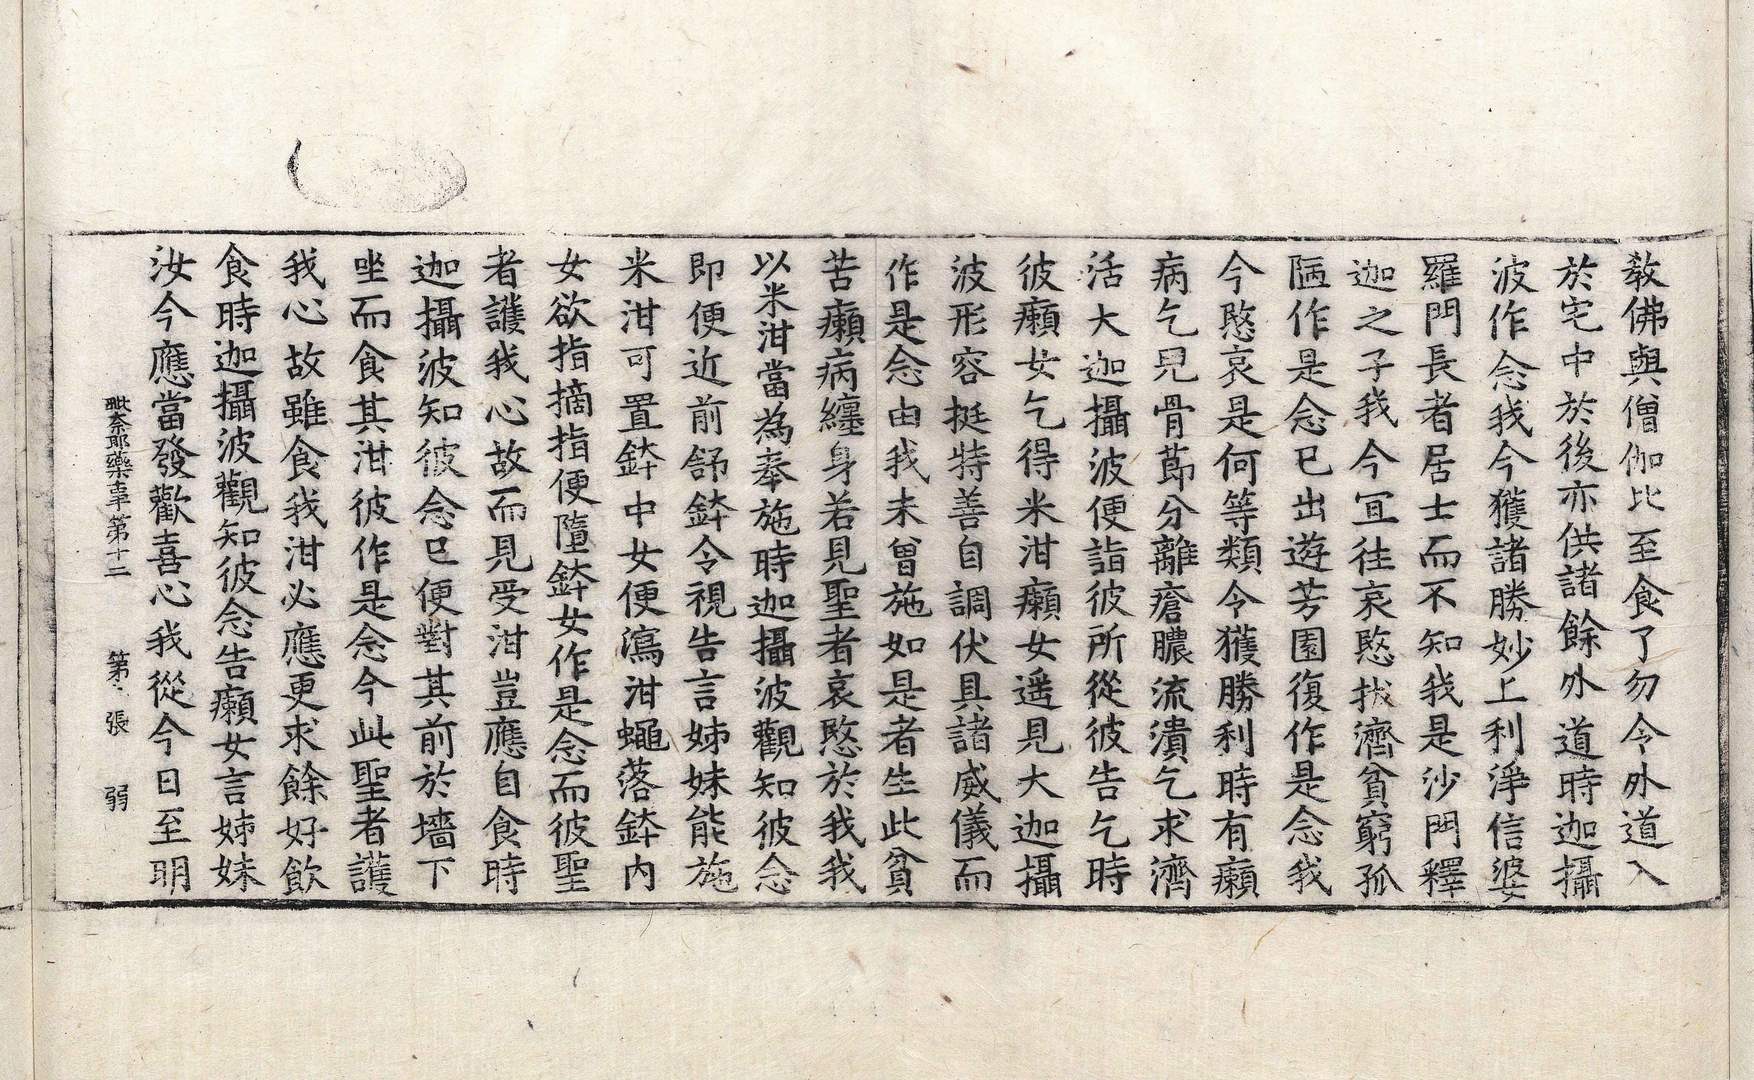 教佛與僧伽比至食了勿令外道入
於宅中於後亦供諸餘外道時迦攝
波作念我今獲諸勝妙上利淨信婆
羅門長者居士而不知我是沙門釋
迦之子我今宜往哀愍拔濟貧窮孤
陋作是念已出遊芳園復作是念我
今愍哀是何等類令獲勝利時有癩
病乞兒骨節分離瘡膿流潰乞求濟
活大迦攝波便詣彼所從彼告乞時
彼癩女乞得米泔癩女遥見大迦攝
波形容挺特善自調伏具諸威儀而
作是念由我未曾施如是者生此貧
苦癩病纏身若見聖者哀愍於我我
以米泔當為奉施時迦攝波觀知彼念
即便近前舒鉢令視告言姊妹能施
米泔可置鉢中女便瀉泔蠅落鉢內
女欲指擿指便墮鉢女作是念而彼聖
者護我心故而見受泔豈應自食時
迦攝波知彼念已便對其前於墻下
坐而食其泔彼作是念今此聖者護
我心故雖食我泔必應更求餘好飲
食時迦攝波觀知彼念告癩女言姊妹
汝今應當發歡喜心我從今日至明
毗奈耶藥事第十二 第 張 弱